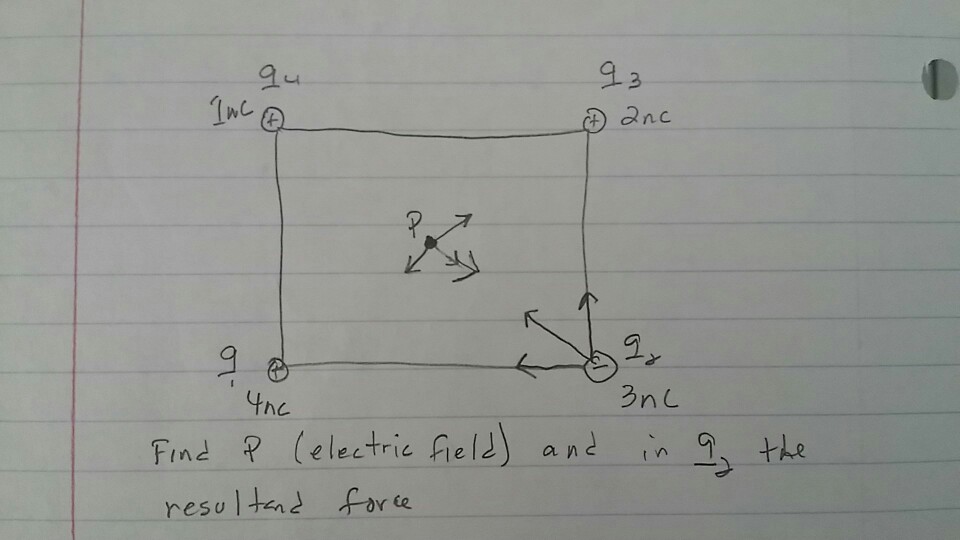 q4 q3
1nc + + 2nc
P
q1 + - q2
4nc 3nc
Find P (electric field) and in q2 the
resultand force